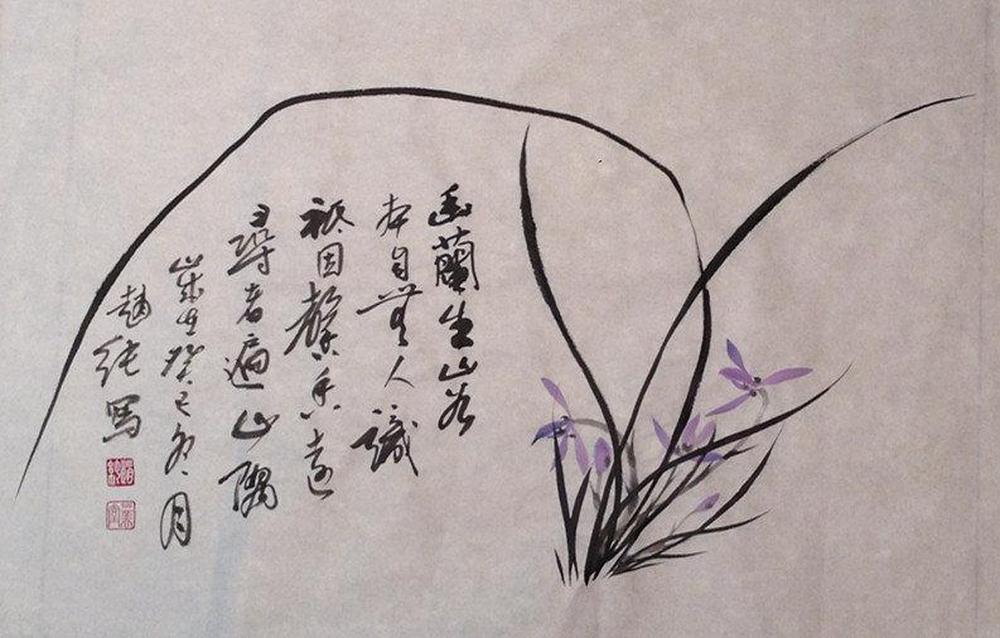 幽蘭生山谷
本自無人識
祇因馨香遠
尋者遍山隅
歲在癸巳冬月
趙純寫